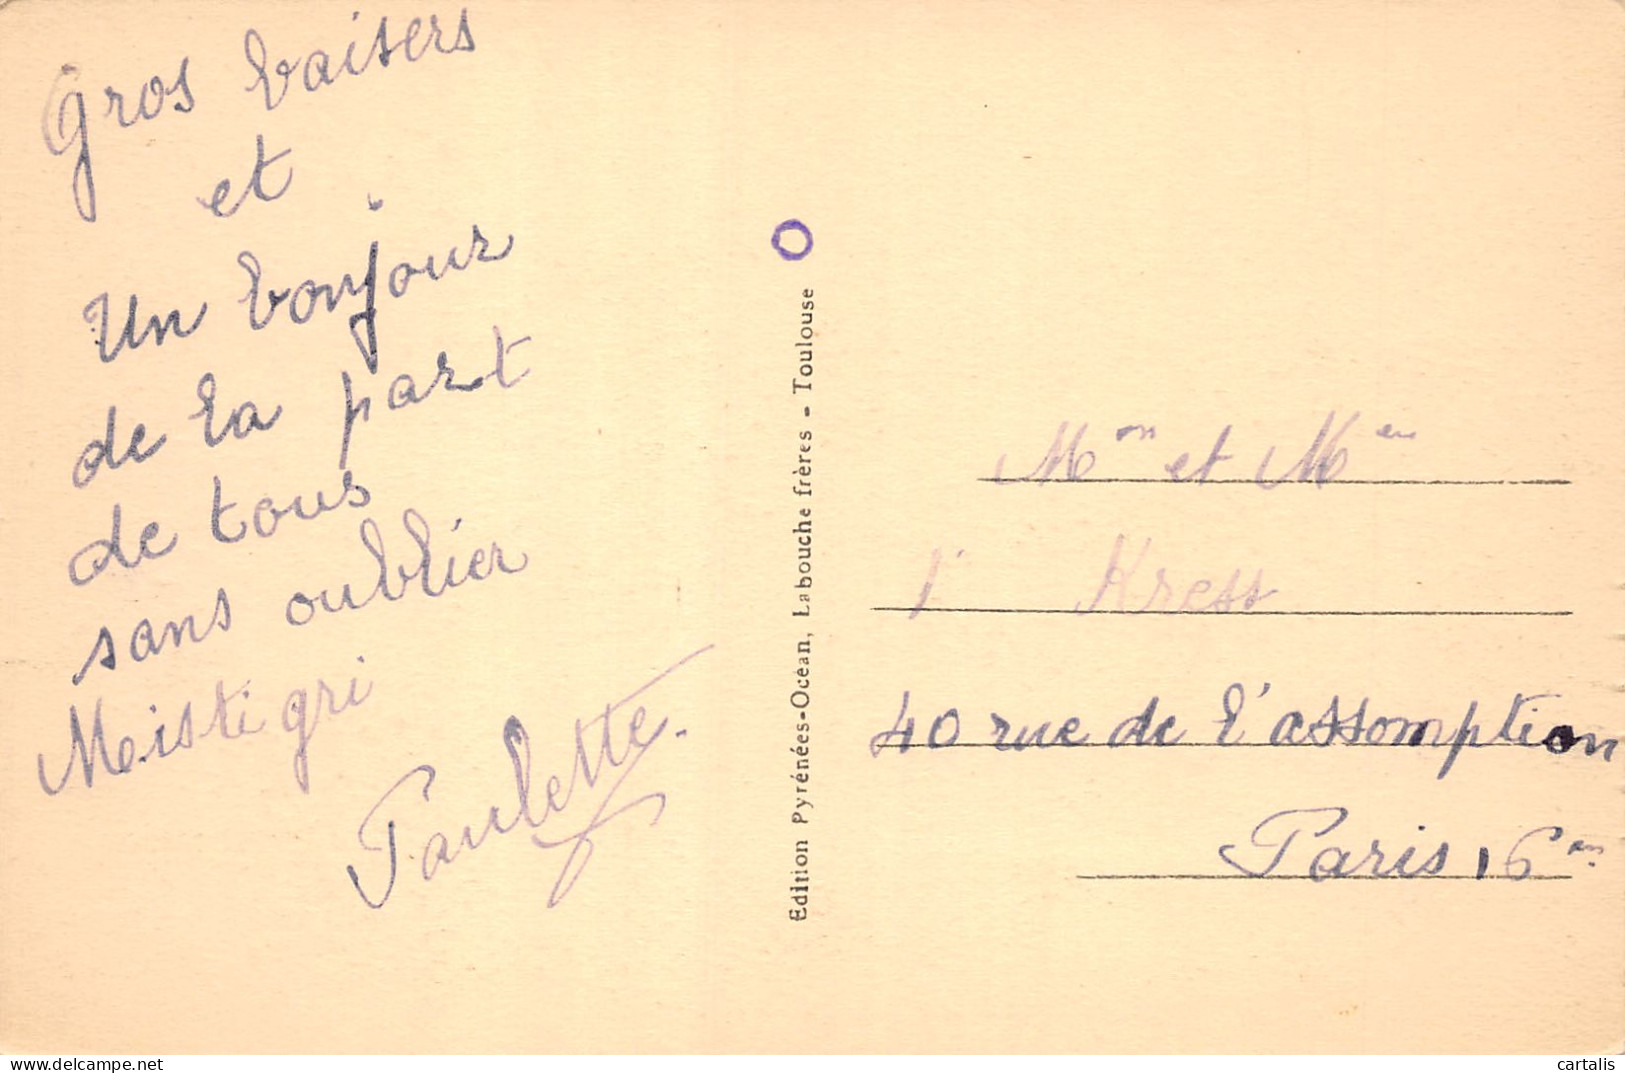 Gros baisers
et
Un bonjour
de la part
de tous
sans oublier
Mistigri
Paulette.
Edition Pyrénées-Océan, Labouche frères - Toulouse
Mon et Mme
Kress
40 rue de l'assomption
Paris 16em
cartalis